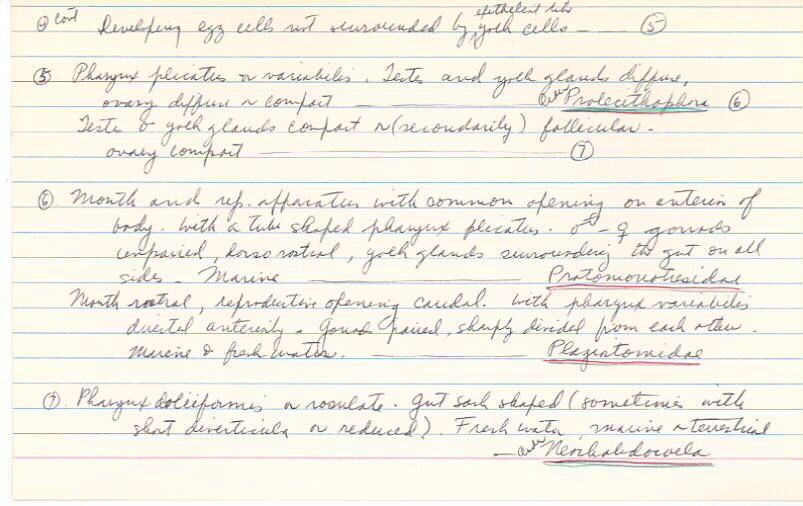 ④ cont Developing egg cells not surrounded by epithelial like yolk cells — ⑤
⑤ Pharynx plicatus or variabilis. Testes and yolk glands diffuse,
ovary diffuse or compact — order Prolecithophora ⑥
Testes & yolk glands compact or (secondarily) follicular.
ovary compact — ⑦
⑥ Mouth and rep. apparatus with common opening on anterior of
body. With a tube shaped pharynx plicatus. ♂ - ♀ gonads
unpaired, dorsorostral, yolk glands surrounding the gut on all
sides - Marine — Protomonotresidae
Mouth rostral, reproductive opening caudal. With pharynx variabilis
directed anteriorly. Gonads paired, sharply divided from each other.
Marine & fresh water. — Plagiostomidae
⑦ Pharynx doliiformis or rosulate. Gut sack shaped (sometimes with
short diverticula or reduced). Fresh water, marine or terrestrial
— order Neorhabdocoela